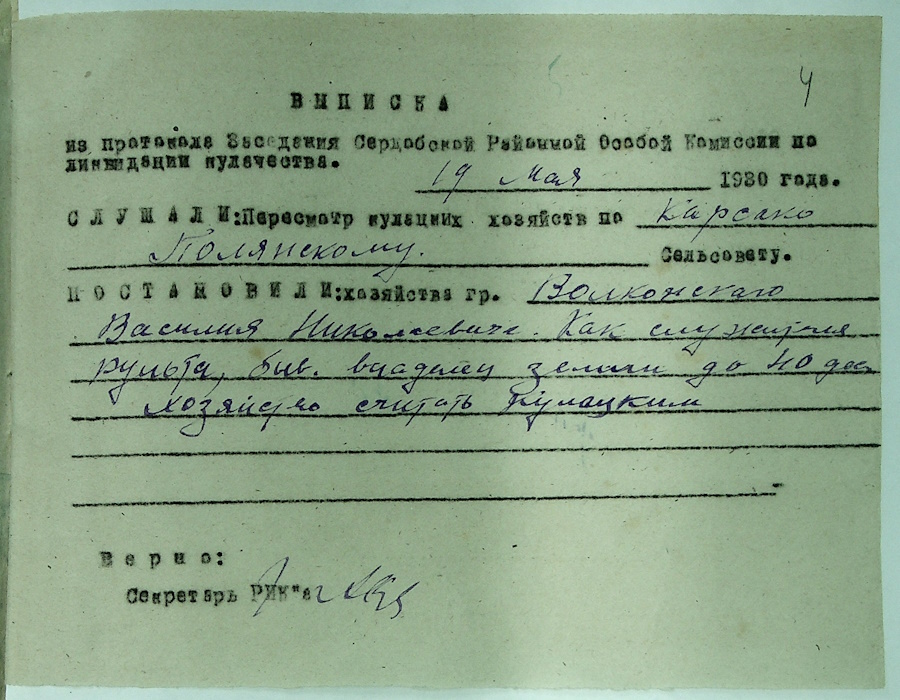 4
ВЫПИСКА
из протокола Заседания Сердобской Районной Особой Комиссии по
ликвидации кулачества.
19 Мая 1930 года.
СЛУШАЛИ: Пересмотр кулацких хозяйств по Карсано
Полянскому. Сельсовету.
ПОСТАНОВИЛИ: хозяйства гр. Волконскаго
Василия Николаевича. Как служителя
культа, быв. владелец земли до 40 дес
хозяйство считать Кулацким
Верно:
Секретарь РИК"а